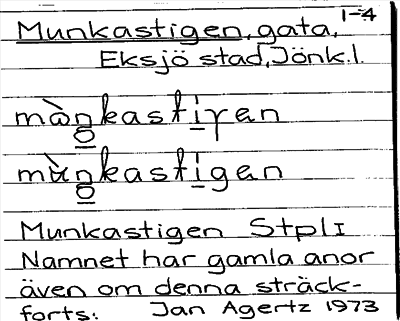 1-4
Munkastigen, gata,
Eksjö stad, Jönk.l.
mùn̥kastigen
Munkastigen Stpl I
Namnet har gamla anor
även om denna sträck-
forts. Jan Agertz 1973